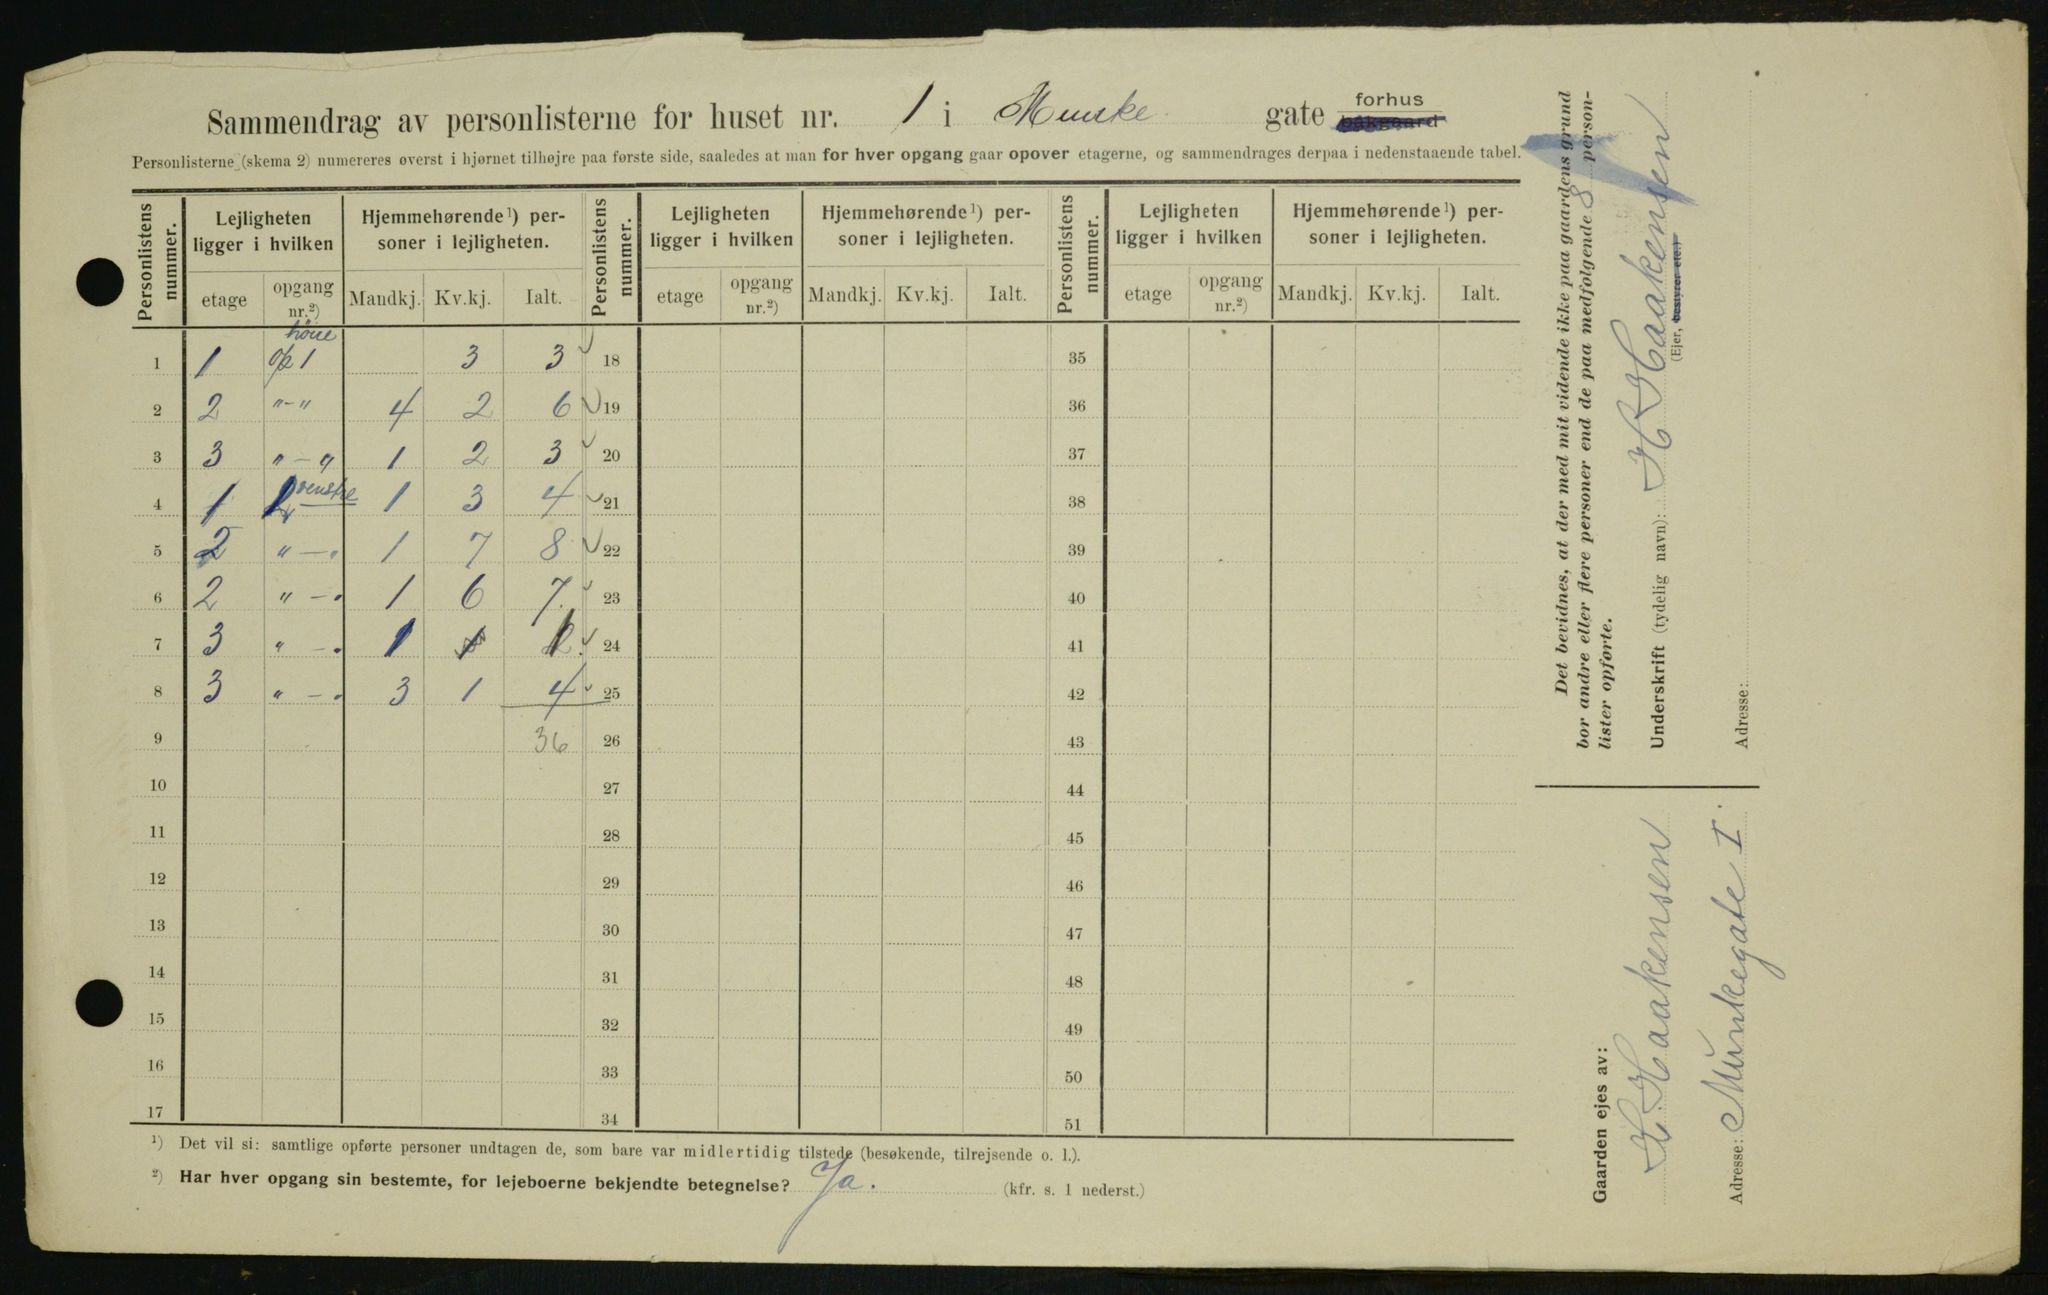 Sammendrag av personlisterne for huset nr. 1 i Munke gate forhus bakgaard
Personlisterne (skema 2) numereres øverst i hjørnet tilhøjre paa første side, saaledes at man for hver opgang gaar opover etagerne, og sammendrages derpaa i nedenstaaende tabel.
Personlistens nummer. Lejligheten ligger i hvilken Hjemmehørende¹) personer i lejligheten. Personlistens nummer. Lejligheten ligger i hvilken Hjemmehørende¹) personer i lejligheten. Personlistens nummer. Lejligheten ligger i hvilken Hjemmehørende¹) personer i lejligheten.
etage opgang nr.²) Mandkj. Kv.kj. Ialt. etage opgang nr.²) Mandkj. Kv.kj. Ialt. etage opgang nr.²) Mandkj. Kv.kj. Ialt.
høire
1 1 op 1 3 3 18 35
2 2 "-" 4 2 6 19 36
3 3 "-" 1 2 3 20 37
4 1 2 venstre 1 3 4 21 38
5 2 "-" 1 7 8 22 39
6 2 "-" 1 6 7 23 40
7 3 "-" 1 1 24 41
8 3 "-" 3 1 4 25 42
9 36 26 43
10 27 44
11 28 45
12 29 46
13 30 47
14 31 48
15 32 49
16 33 50
17 34 51
¹) Det vil si: samtlige opførte personer undtagen de, som bare var midlertidig tilstede (besøkende, tilrejsende o. l.).
²) Har hver opgang sin bestemte, for lejeboerne bekjendte betegnelse? Ja. (kfr. s. 1 nederst.)
Det bevidnes, at der med mit vidende ikke paa gaardens grund
bor andre eller flere personer end de paa medfølgende 8 person-
lister opførte.
Underskrift (tydelig navn): H Haakensen
(Ejer, bestyrer etc.)
Adresse:
Gaarden ejes av:
H. Haakensen
Adresse: Munkegate I.